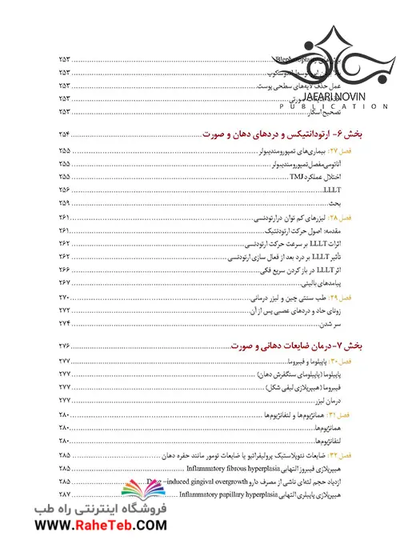 ۲۵۳
۲۵۳
عمل حذف لایه‌های سطحی پوست ۲۵۳
JAFARI NOVIN
PUBLICATION
۲۵۳
تصحیح اسکار ۲۵۳
بخش ۶- ارتودانتیکس و دردهای دهان و صورت ۲۵۴
فصل ۲۷: بیماری‌های تمپورومندیبولر ۲۵۵
آناتومی مفصل تمپورومندیبولر ۲۵۵
اختلال عملکرد TMJ ۲۵۵
LLLT ۲۵۶
بحث ۲۵۹
فصل ۲۸: لیزرهای کم توان در ارتودنسی ۲۶۱
مقدمه: اصول حرکت ارتودنتیک ۲۶۱
اثرات LLLT بر سرعت حرکت ارتودنسی ۲۶۲
تأثیر LLLT بر درد بعد از فعال سازی ارتودنسی ۲۶۲
اثر LLLT در باز کردن سریع فکی ۲۶۶
پیامدهای بالینی ۲۶۷
فصل ۲۹: طب سنتی چین و لیزر درمانی ۲۷۰
زونای حاد و دردهای عصبی پس از آن ۲۷۲
سر شدن ۲۷۴
بخش ۷-درمان ضایعات دهانی و صورت ۲۷۶
فصل ۳۰: پاپیلوما و فیبروما ۲۷۷
پاپیلوما (پاپیلومای سنگفرش دهان) ۲۷۷
فیبروما (هیپرپلازی لیفی شکل) ۲۷۷
درمان لیزر ۲۷۷
فصل ۳۱: همانژیوم‌ها و لنفانژیوم‌ها ۲۸۰
همانژیوم‌ها ۲۸۰
لنفانژیوم‌ها ۲۸۰
فصل ۳۲: ضایعات نئوپلاستیک پرولیفراتیو یا ضایعات تومور مانند حفره دهان ۲۸۵
هیپرپلازی فیبروز التهابی Inflammatory fibrous hyperplasia ۲۸۵
ازدیاد حجم لثه‌ای ناشی از مصرف دارو Drug-induced gingival overgrowth ۲۸۵
هیپرپلازی پاپیلری التهابی Inflammatory papillary hyperplasia ۲۸۷
فروشگاه اینترنتی راه طب
www.RaheTeb.com